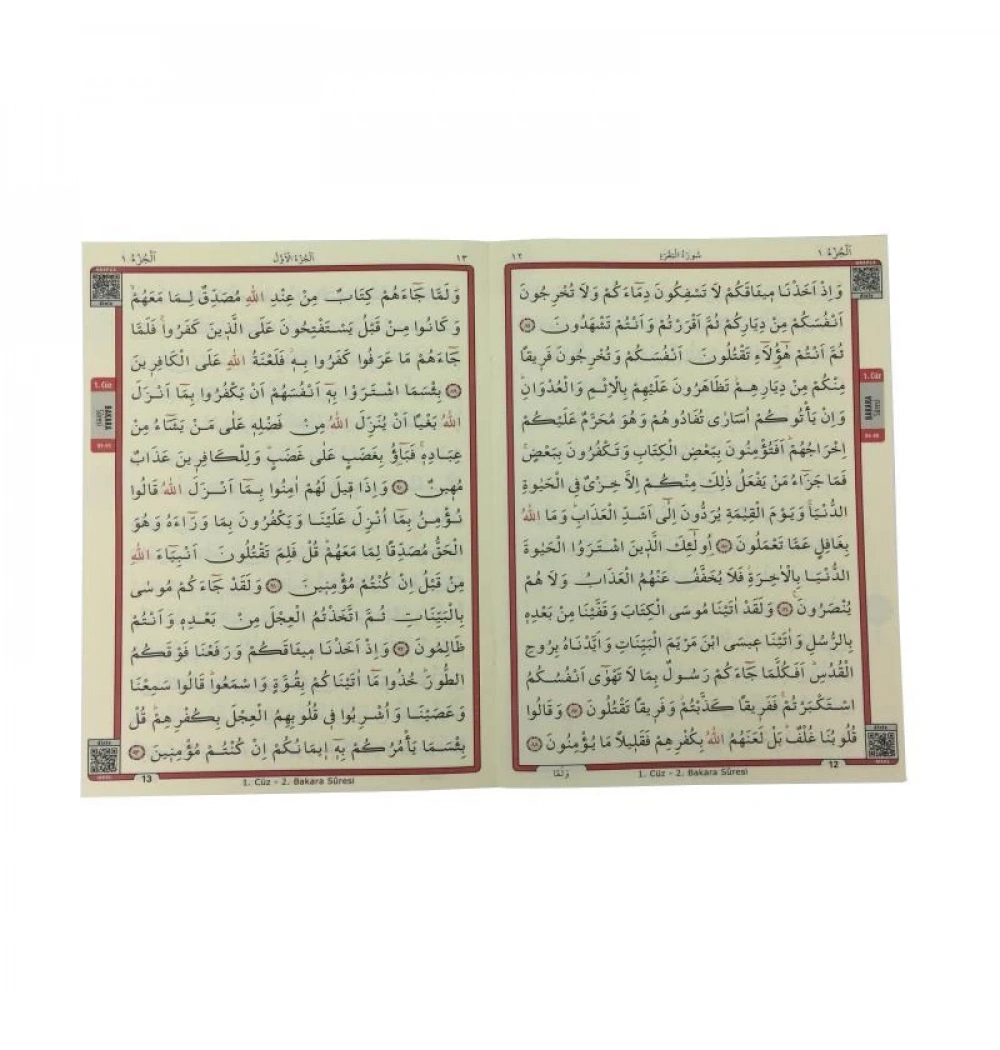 اَلْجُزْءُ ١
سُورَةُ الْبَقَرَةِ
١٢
وَاِذْ اَخَذْنَا م۪يثَاقَكُمْ لَا تَسْفِكُونَ دِمَٓاءَكُمْ وَلَا تُخْرِجُونَ
اَنْفُسَكُمْ مِنْ دِيَارِكُمْ ثُمَّ اَقْرَرْتُمْ وَاَنْتُمْ تَشْهَدُونَ
ثُمَّ اَنْتُمْ هٰٓؤُ۬لَٓاءِ تَقْتُلُونَ اَنْفُسَكُمْ وَتُخْرِجُونَ فَر۪يقًا
مِنْكُمْ مِنْ دِيَارِهِمْۘ تَظَاهَرُونَ عَلَيْهِمْ بِالْاِثْمِ وَالْعُدْوَانِۜ
وَاِنْ يَأْتُوكُمْ اُسَارٰى تُفَادُوهُمْ وَهُوَ مُحَرَّمٌ عَلَيْكُمْ
اِخْرَاجُهُمْۜ اَفَتُؤْمِنُونَ بِبَعْضِ الْكِتَابِ وَتَكْفُرُونَ بِبَعْضٍۚ
فَمَا جَزَٓاءُ مَنْ يَفْعَلُ ذٰلِكَ مِنْكُمْ اِلَّا خِزْىٌ فِي الْحَيٰوةِ
الدُّنْيَاۚ وَيَوْمَ الْقِيٰمَةِ يُرَدُّونَ اِلٰٓى اَشَدِّ الْعَذَابِۜ وَمَا اللّٰهُ
بِغَافِلٍ عَمَّا تَعْمَلُونَ اُو۬لٰٓئِكَ الَّذ۪ينَ اشْتَرَوُا الْحَيٰوةَ
الدُّنْيَا بِالْاٰخِرَةِۘ فَلَا يُخَفَّفُ عَنْهُمُ الْعَذَابُ وَلَا هُمْ
يُنْصَرُونَ۟ وَلَقَدْ اٰتَيْنَا مُوسَى الْكِتَابَ وَقَفَّيْنَا مِنْ بَعْدِه۪
بِالرُّسُلِ وَاٰتَيْنَا ع۪يسَى ابْنَ مَرْيَمَ الْبَيِّنَاتِ وَاَيَّدْنَاهُ بِرُوحِ
الْقُدُسِۜ اَفَكُلَّمَا جَٓاءَكُمْ رَسُولٌ بِمَا لَا تَهْوٰٓى اَنْفُسُكُمُ
اسْتَكْبَرْتُمْۚ فَفَر۪يقًا كَذَّبْتُمْۘ وَفَر۪يقًا تَقْتُلُونَ وَقَالُوا
قُلُوبُنَا غُلْفٌۜ بَلْ لَعَنَهُمُ اللّٰهُ بِكُفْرِهِمْ فَقَل۪يلًا مَا يُؤْمِنُونَ
وَلَمَّا
1. Cüz - 2. Bakara Sûresi
12
1. Cüz
BAKARA
Sûresi
١٣
اَلْجُزْءُ الْاَوَّلُ
اَلْجُزْءُ ١
وَلَمَّا جَٓاءَهُمْ كِتَابٌ مِنْ عِنْدِ اللّٰهِ مُصَدِّقٌ لِمَا مَعَهُمْۙ
وَكَانُوا مِنْ قَبْلُ يَسْتَفْتِحُونَ عَلَى الَّذ۪ينَ كَفَرُواۚ فَلَمَّا
جَٓاءَهُمْ مَا عَرَفُوا كَفَرُوا بِه۪ۘ فَلَعْنَةُ اللّٰهِ عَلَى الْكَافِر۪ينَ
بِئْسَمَا اشْتَرَوْا بِه۪ٓ اَنْفُسَهُمْ اَنْ يَكْفُرُوا بِمَٓا اَنْزَلَ
اللّٰهُ بَغْيًا اَنْ يُنَزِّلَ اللّٰهُ مِنْ فَضْلِه۪ عَلٰى مَنْ يَشَٓاءُ مِنْ
عِبَادِه۪ۚ فَبَٓاؤُ۫ بِغَضَبٍ عَلٰى غَضَبٍۜ وَلِلْكَافِر۪ينَ عَذَابٌ
مُه۪ينٌ وَاِذَا ق۪يلَ لَهُمْ اٰمِنُوا بِمَٓا اَنْزَلَ اللّٰهُ قَالُوا
نُؤْمِنُ بِمَٓا اُنْزِلَ عَلَيْنَا وَيَكْفُرُونَ بِمَا وَرَٓاءَهُ۠ وَهُوَ
الْحَقُّ مُصَدِّقًا لِمَا مَعَهُمْۜ قُلْ فَلِمَ تَقْتُلُونَ اَنْبِيَٓاءَ اللّٰهِ
مِنْ قَبْلُ اِنْ كُنْتُمْ مُؤْمِن۪ينَ وَلَقَدْ جَٓاءَكُمْ مُوسٰى
بِالْبَيِّنَاتِ ثُمَّ اتَّخَذْتُمُ الْعِجْلَ مِنْ بَعْدِه۪ وَاَنْتُمْ
ظَالِمُونَ وَاِذْ اَخَذْنَا م۪يثَاقَكُمْ وَرَفَعْنَا فَوْقَكُمُ
الطُّورَۜ خُذُوا مَٓا اٰتَيْنَاكُمْ بِقُوَّةٍ وَاسْمَعُواۜ قَالُوا سَمِعْنَا
وَعَصَيْنَا وَاُشْرِبُوا ف۪ي قُلُوبِهِمُ الْعِجْلَ بِكُفْرِهِمْۜ قُلْ
بِئْسَمَا يَأْمُرُكُمْ بِه۪ٓ ا۪يمَانُكُمْ اِنْ كُنْتُمْ مُؤْمِن۪ينَ
1. Cüz - 2. Bakara Sûresi
13
1. Cüz
BAKARA
Sûresi